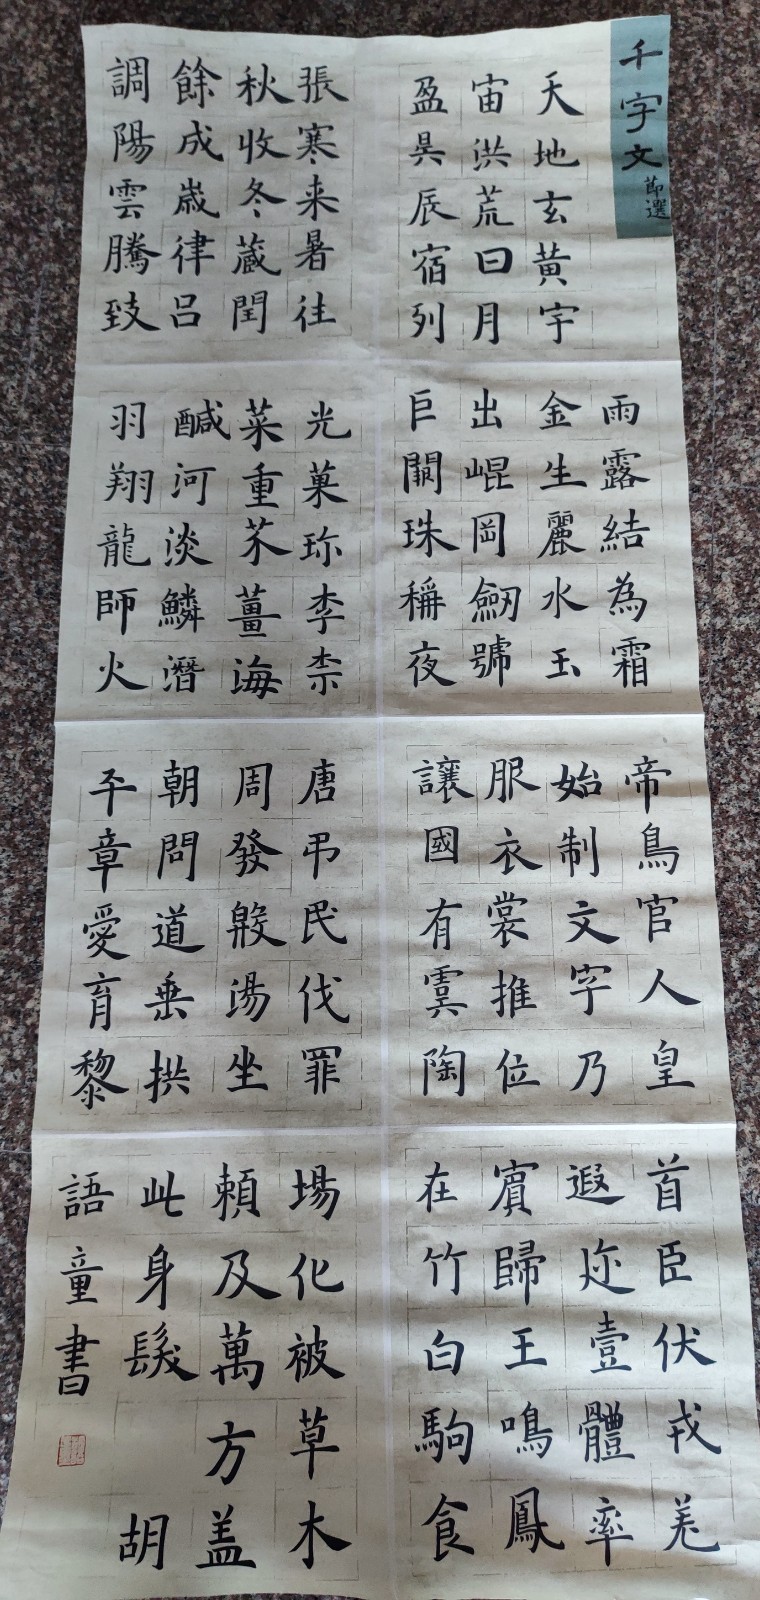 千字文節選
天地玄黄宇
宙洪荒日月
盈昃辰宿列
張寒来暑往
秋收冬蔵閏
餘成歳律吕
調陽雲騰致
雨露結為霜
金生麗水玉
出崐岡劒號
巨闕珠稱夜
光菓珎李柰
菜重芥薑海
醎河淡鱗潛
羽翔龍師火
帝鳥官人皇
始制文字乃
服衣裳推位
讓國有虞陶
唐弔民伐罪
周發殷湯坐
朝問道垂拱
平章愛育黎
首臣伏戎羌
遐迩壹體率
賓歸王鳴鳳
在竹白駒食
場化被草木
賴及萬方盖
此身髮 胡
語童書